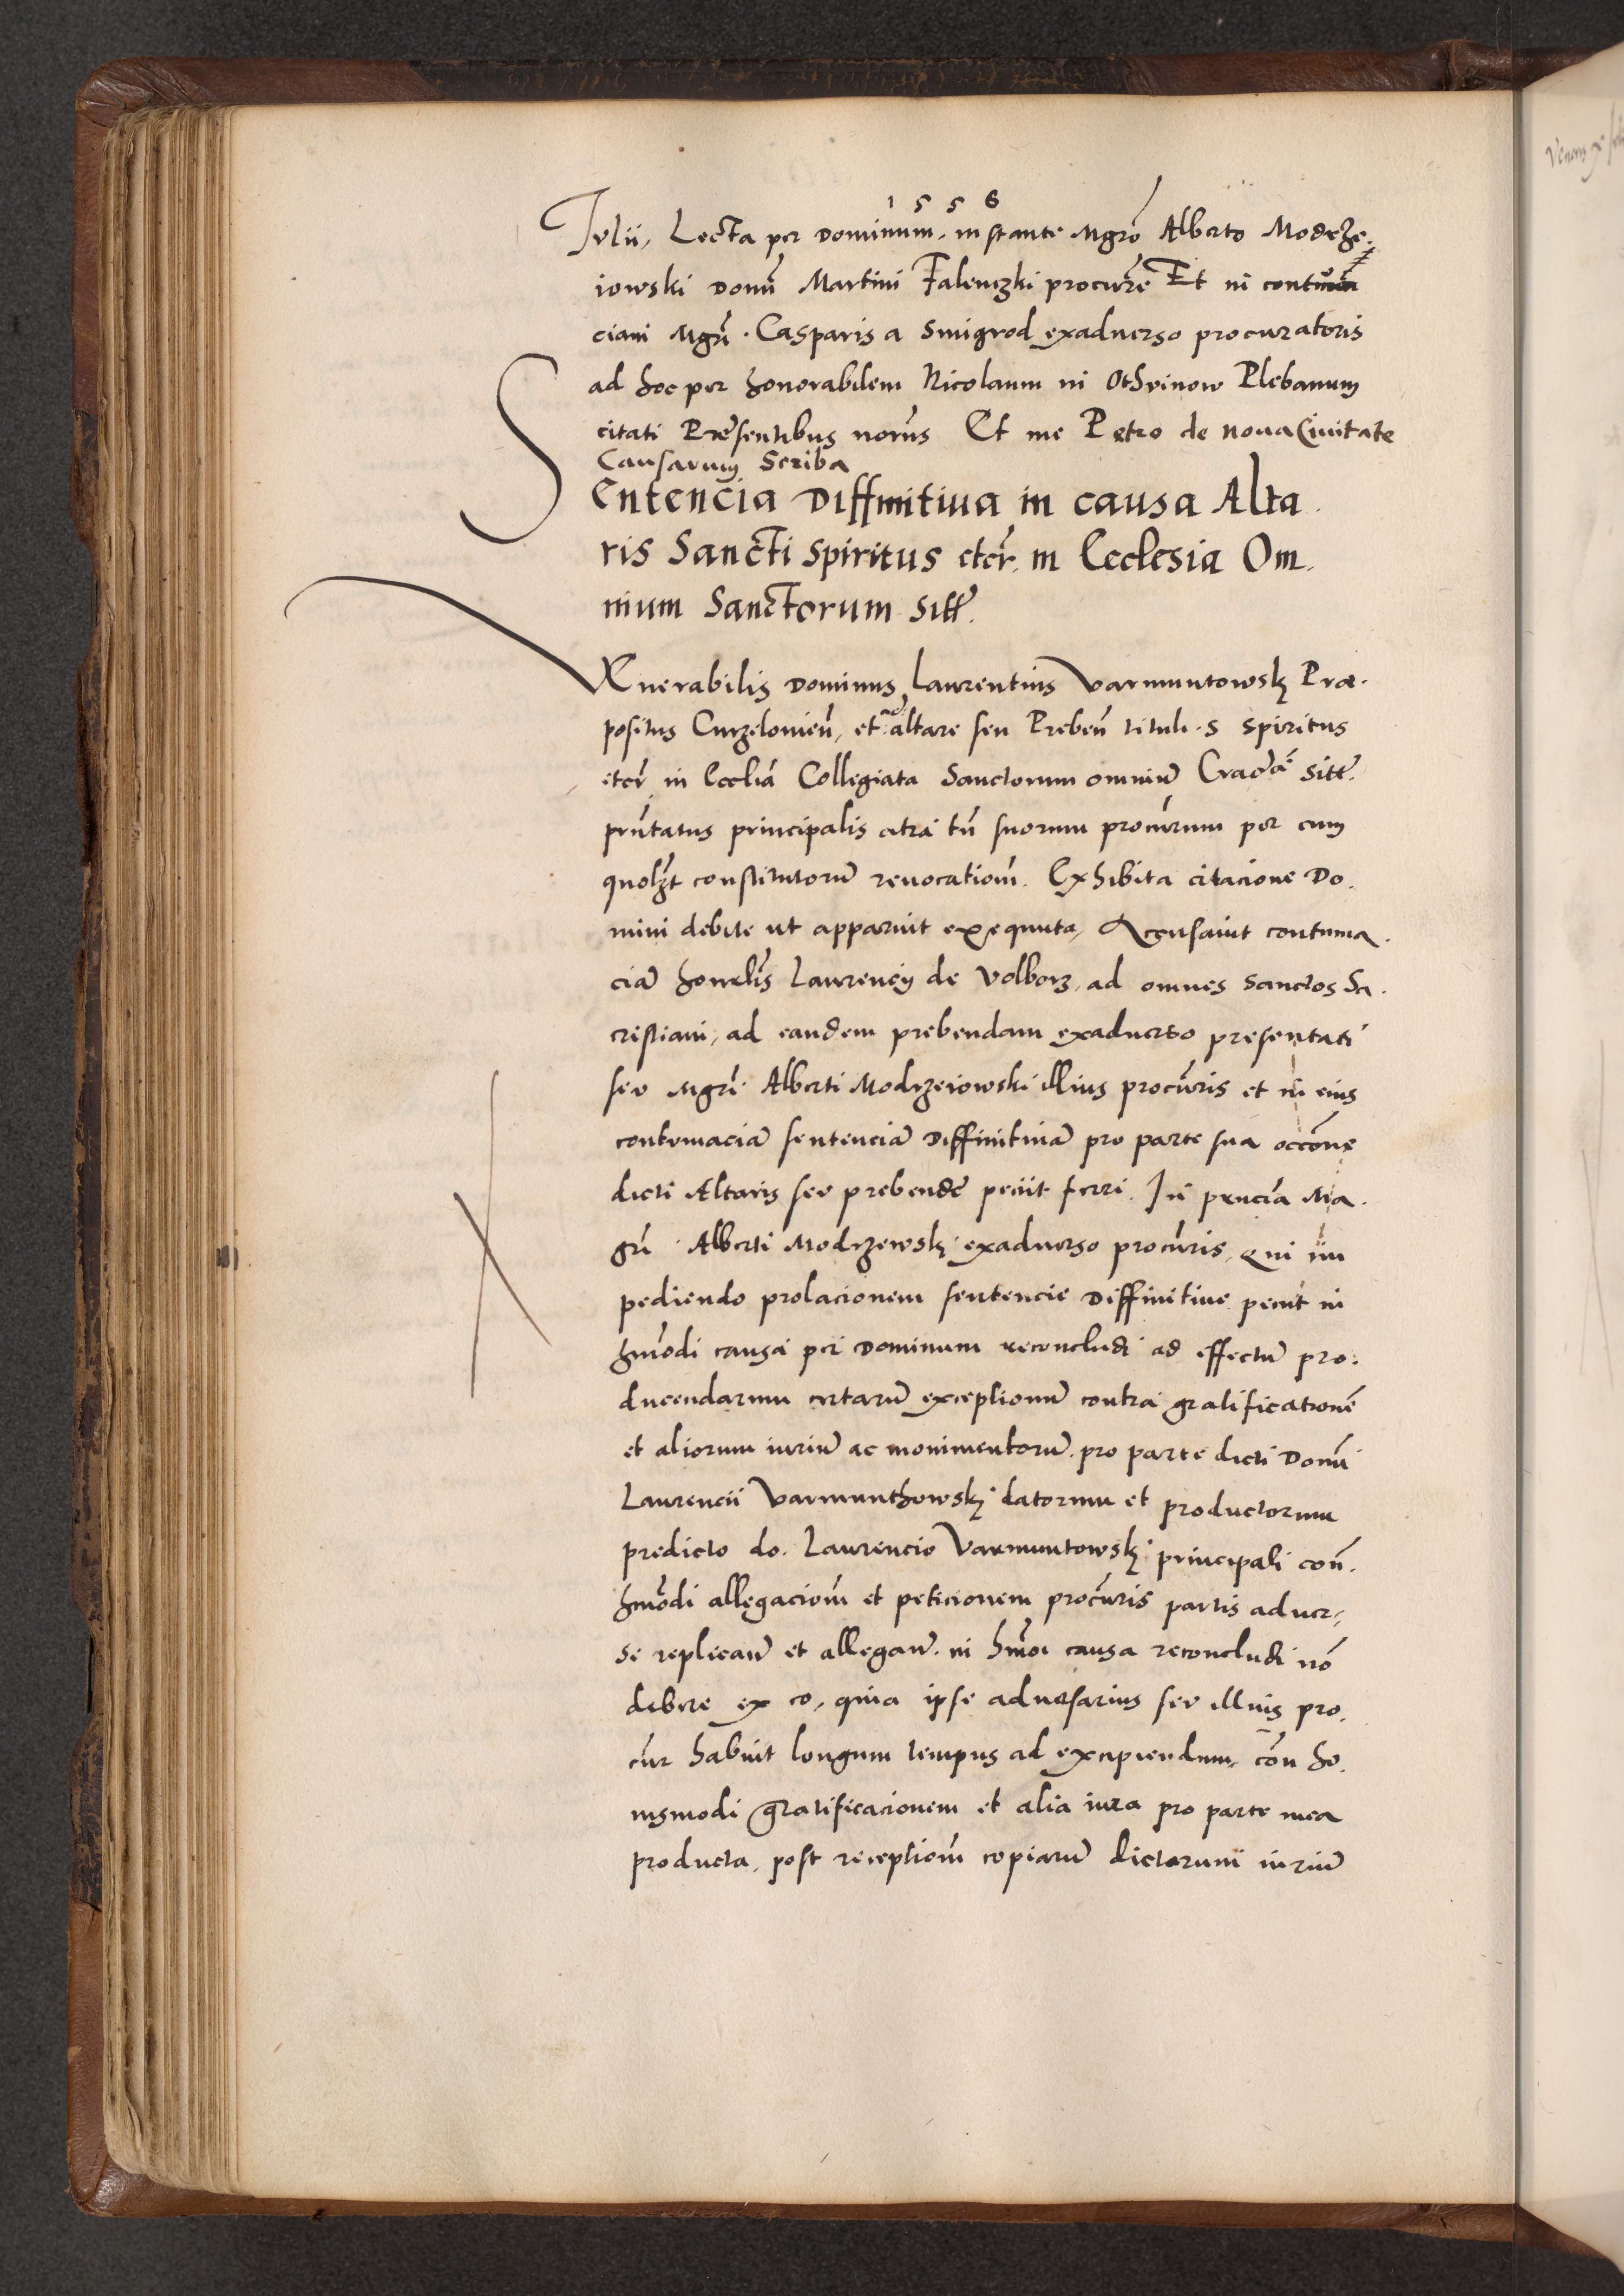 1556
Iulii, Lecta per Dominum, instante Mgro Alberto Modrze
iowski Domi Martini Falenczki procure Et in contuma
ciam Mgri Casparis a Smigrod exaduerso procuratoris
ad hoc per honorabilem Nicolaum in Othvinow Plebanum
citati Presentibus noris Et me Petro de noua Ciuitate
Causarum Scriba
Sentencia Diffinitiua in causa Alta
ris Sancti Spiritus etcr. in Ecclesia Om
nium Sanctorum sitt.
Venerabilis Dominus Laurentius Varmuntowsky Præ
positus Curzelonien, et ad altare seu Preben tituli S Spiritus
etcr in Ecclia Collegiata Sanctorum omniu Craco. sitt.
pntatus principalis citra tn suorum procurum per eum
quolzt constitutoru reuocationem. Exhibita citacione Do
mini debite ut apparuit exequuta, Accusauit contuma
cia honrlis Laurencij de Volborz, ad omnes Sanctos Sa
cristiani, ad eandem prebendam exaduerso presentati
seu Mgri Alberti Modrzeiowski illius procuris et in eius
contumacia sentencia Diffinitiua pro parte sua occone
dicti Altaris seu prebende peciit ferri. In pncia Ma
gri Alberti Modrzewsky exaduerso procuris, Qui im
pediendo prolacionem sentencie Diffinitiue peciit in
hmodi causa per Dominum reconcludi ad effectu pro
ducendarum certaru exceptionu contra gratificatione
et aliorum iuriu ac monimentoru pro parte dicti Domi
Laurencii Varmunthowsky datorum et productorum
predicto do. Laurencio Varmuntowsky principali con
hmodi allegaciom et peticionem procuris partis aduer
se replican et allegan. in hmoi causa reconcludi no
debere ex eo, quia ipse aduersarius seu illius pro
cur habuit longum tempus ad excipiendum con hu
iusmodi gratificacionem et alia iura pro parte mea
producta, post receptiom copiaru dictorum iuriu